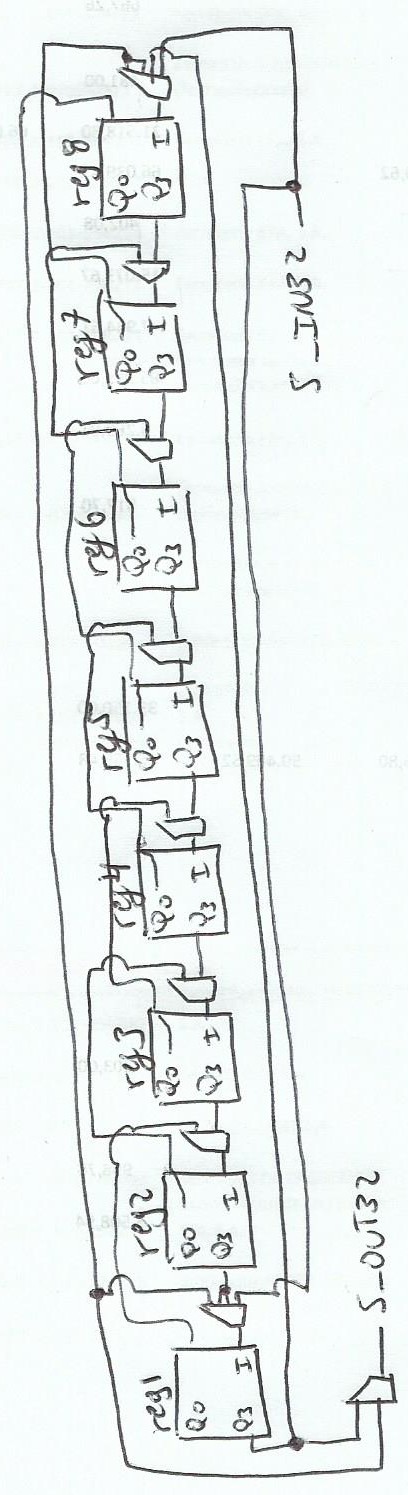 reg1
Q0
Q3 I
reg2
Q0
Q3 I
reg3
Q0
Q3 I
reg4
Q0
Q3 I
reg5
Q0
Q3 I
reg6
Q0
Q3 I
reg7
Q0
Q3 I
reg8
Q0
Q3 I
S_IN32
S_OUT32